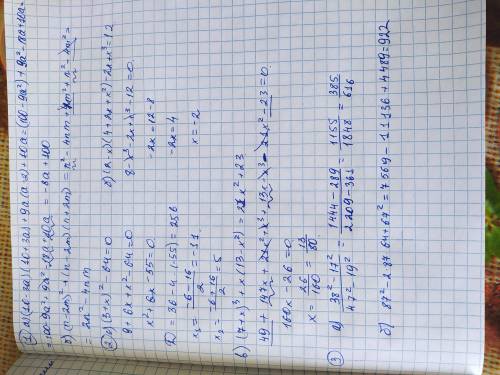 ① а) (10-3а)(10+3а)+9а(а-2)+10а=(100-9а²)+9а²-18а+10а=
=100-9а²+9а²-18а+10а = -8а+100
б) (n-2m)²+(n-2m)(n+2m)=n²-4nm+4m²+n²-4m²=
= 2n²-4nm
② а) (3+x)²-64=0
9+6x+x²-64=0
x²+6x-55=0
D = 36-4(-55)=256
x₁ = -6-16/2 = -11
x₂ = -6+16/2 = 5
б) (2-x)(4+2x+x²)-2x+x³=12
8-x³-2x+x³-12=0
-2x=12-8
-2x=4
x=-2
в) (7+x)³+x(13-x²)=21x²+23
49+147x+21x²+x³+13x-x³-21x²-23=0
160x-26=0
x= 26/160 = 13/80
③ а) 38²-17²/47²-19² = 1444-289/2209-361 = 1155/1848 = 385/616
б) 87²-2·87·64+67²=7569-11136+4489=922